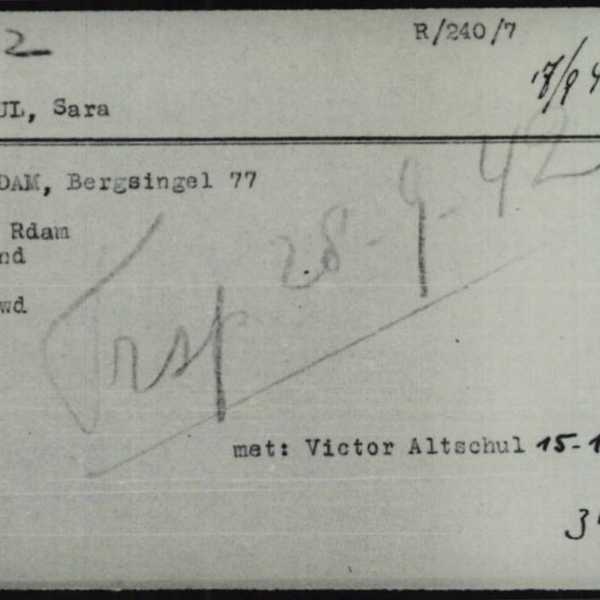 2
R/240/7
UL, Sara
DAM, Bergsingel 77
Rdam
nd
wd
Trsp 28-9-42
met: Victor Altschul 15-1
3